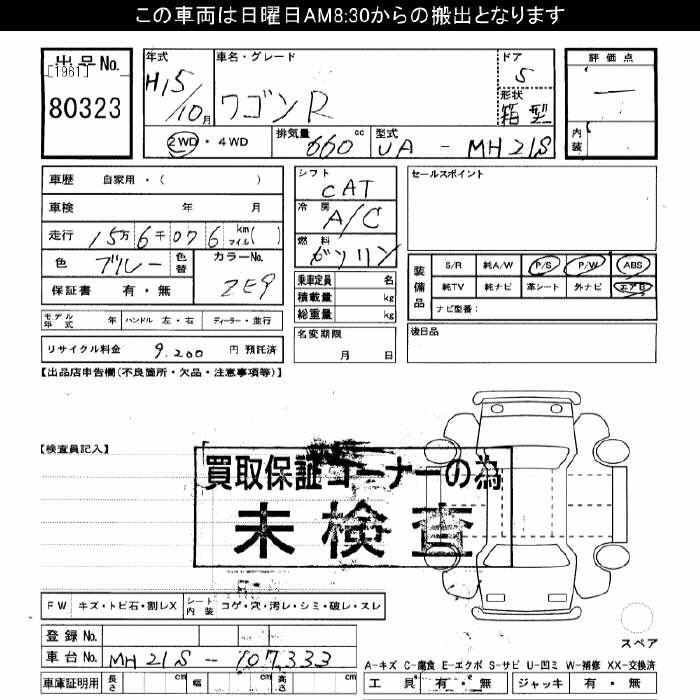 この車両は日曜日AM8:30からの搬出となります
出品No.
[1961]
80323
年式
H15/10月
車名・グレード
ワゴンR
ドア
5
形状
箱型
評価点
内装
2WD・4WD
排気量 660 cc
型式 UA-MH21S
車歴 自家用・( )
車検 年 月
走行 15万6千076 km マイル( )
色 ブルー 色替 カラーNo. ZE9
保証書 有・無
モデル年式 年 ハンドル 左・右 ディーラー・並行
リサイクル料金 9,200 円 預託済
シフト CAT
冷房 A/C
燃料 ガソリン
乗車定員 名
積載量 kg
総重量 kg
名変期限
月 日
セールスポイント
装備品
S/R 純A/W P/S P/W ABS
純TV 純ナビ 革シート 外ナビ エアB
ナビ型番:
後日品
【出品店申告欄(不良箇所・欠品・注意事項等)】
【検査員記入】
買取保証コーナーの為
未検査
FW キズ・トビ石・割レX シート内装 コゲ・穴・汚レ・シミ・破レ・スレ
登録No.
車台No. MH21S-107333
車庫証明用 長さ cm 幅 cm 高さ cm
スペア
A-キズ C-腐食 E-エクボ S-サビ U-凹ミ W-補修 XX-交換済
工具 有・無 ジャッキ 有・無